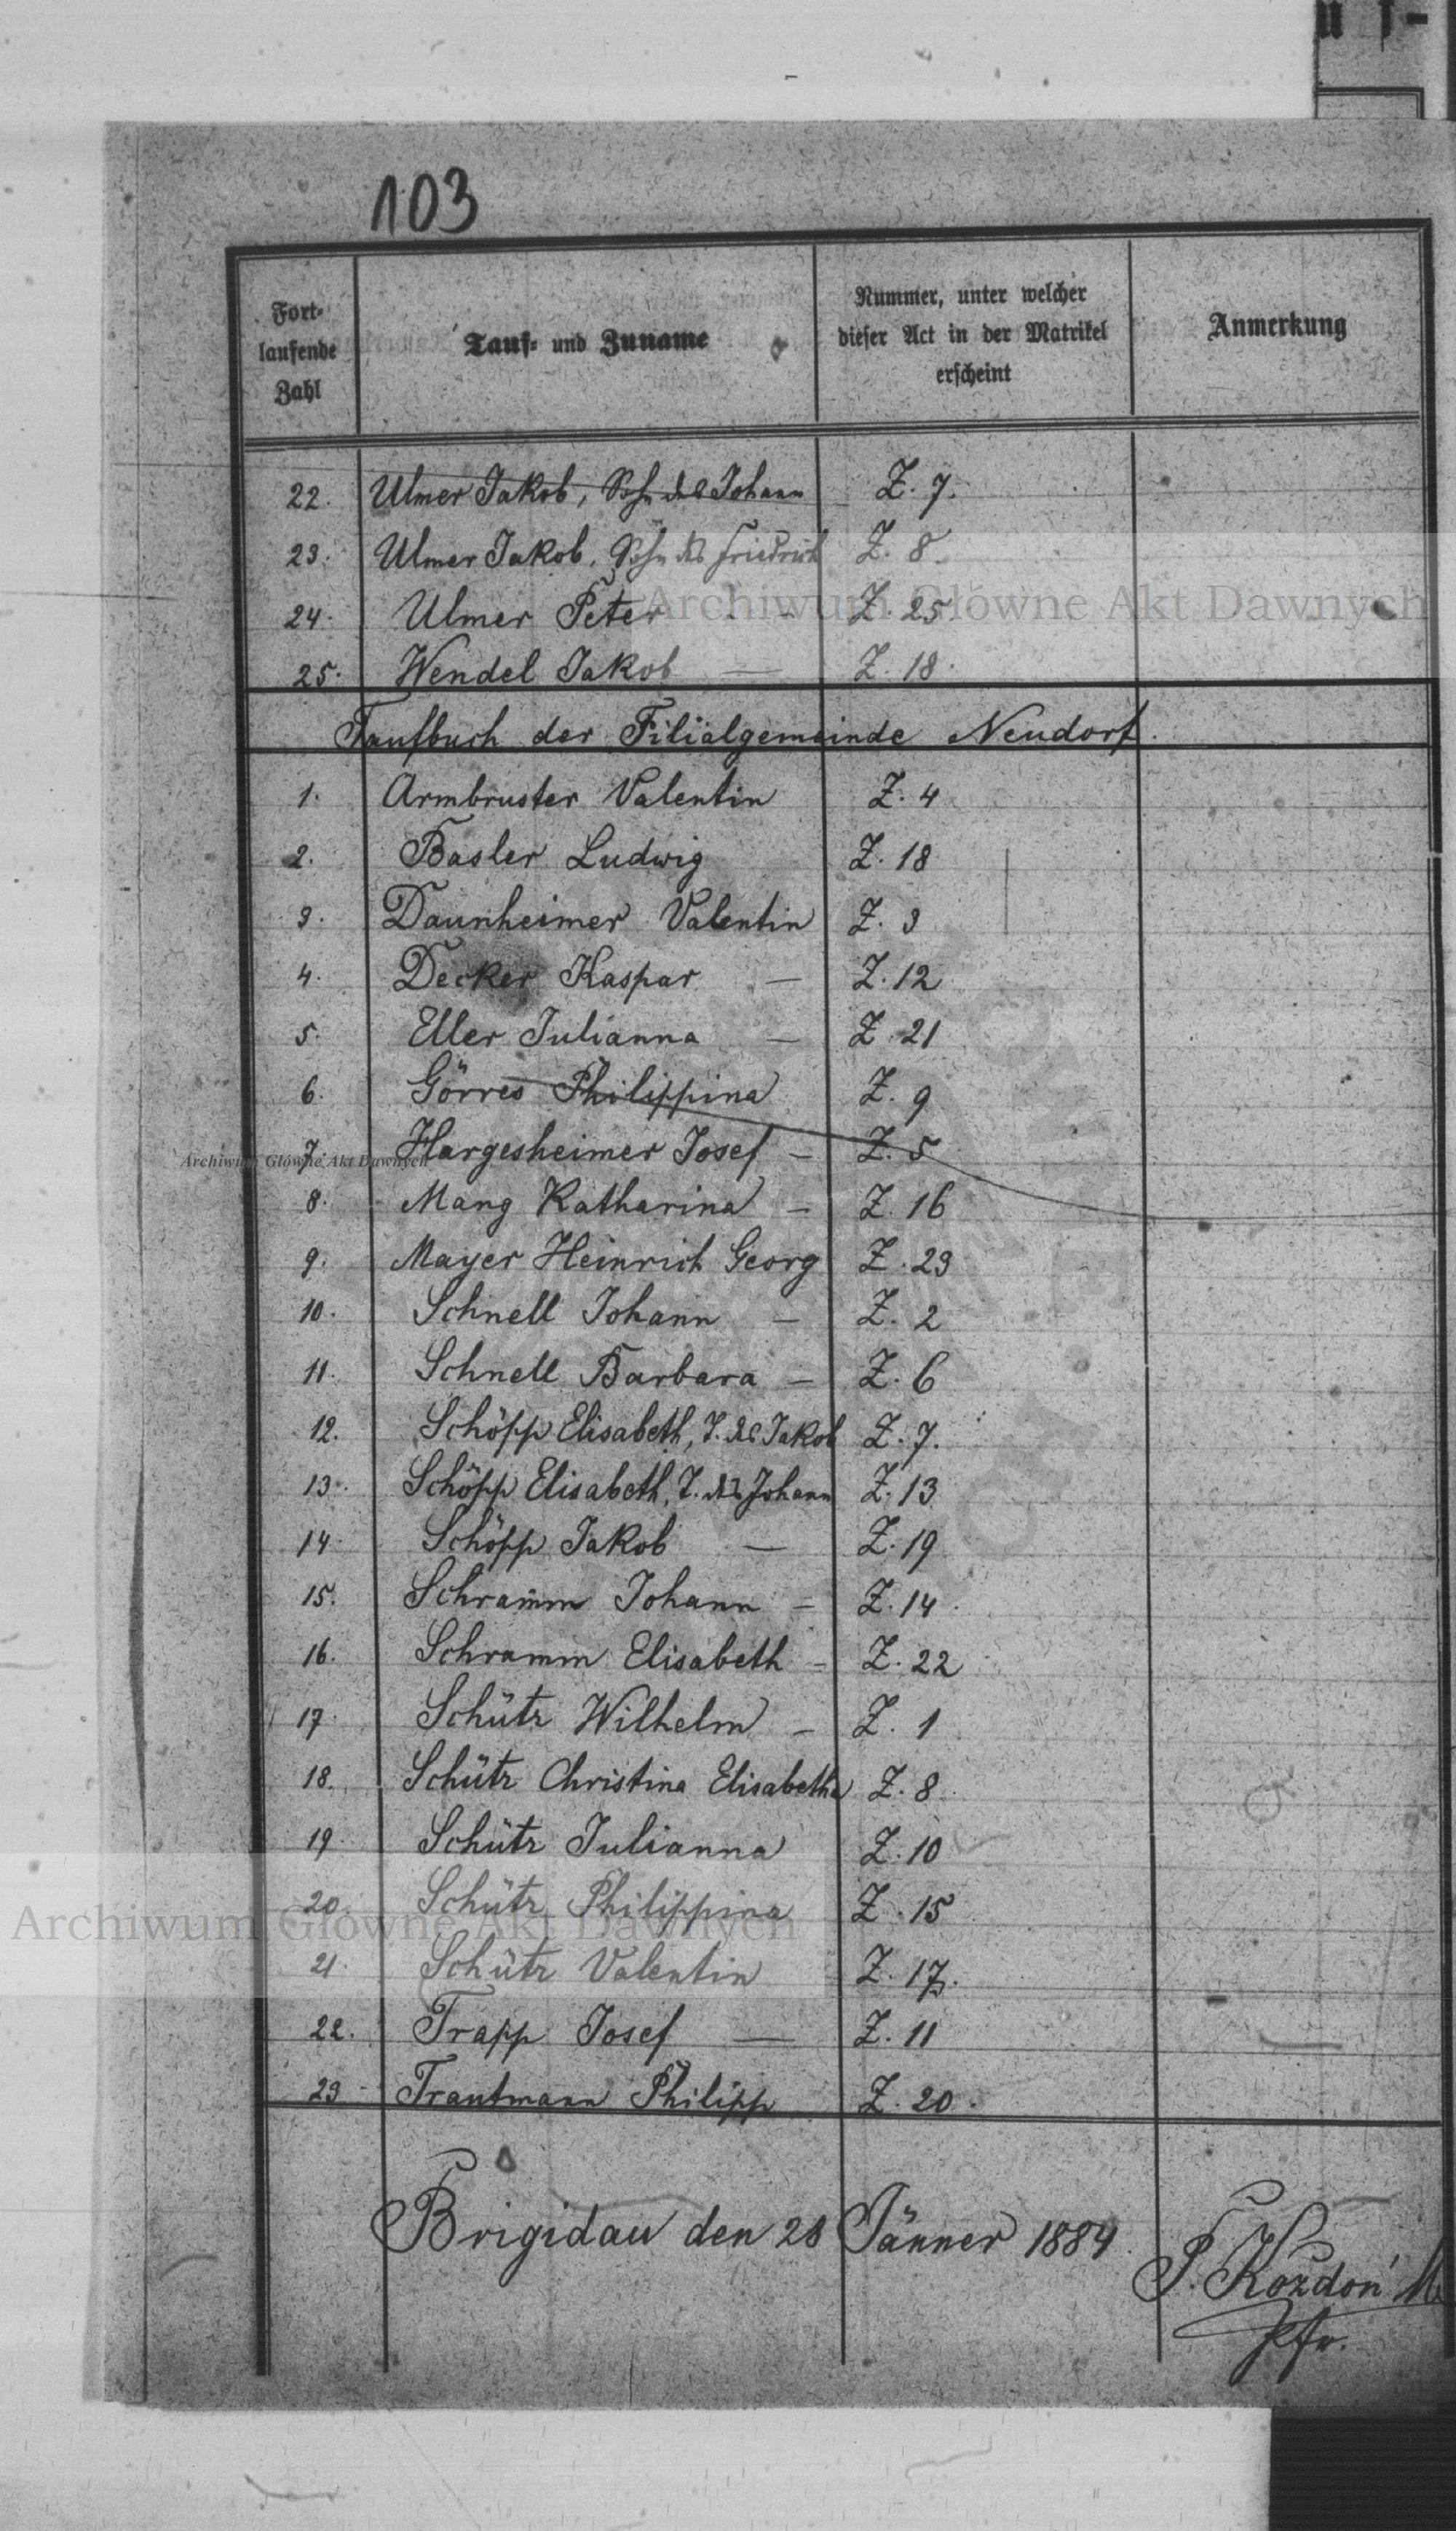 103
Fort-
laufende
Zahl
Tauf- und Zuname
Nummer, unter welcher
dieser Act in der Matrikel
erscheint
Anmerkung
22. Ulmer Jakob, Sohn des Johann Z. 7.
23. Ulmer Jakob, Sohn des Friedrich Z. 8.
24. Ulmer Peter - Z. 25.
Archiwum Główne Akt Dawnych
25. Wendel Jakob — Z. 18.
Taufbuch der Filialgemeinde Neudorf.
1. Armbruster Valentin Z. 4
2. Basler Ludwig Z. 18
3. Daunheimer Valentin Z. 3
4. Decker Kaspar — Z. 12
5. Eller Julianna — Z. 21
6. Görres Philippina Z. 9
7. Hargesheimer Josef — Z. 5
Archiwum Główne Akt Dawnych
8. Mang Katharina — Z. 16
9. Mayer Heinrich Georg Z. 23
10. Schnell Johann — Z. 2
11. Schnell Barbara — Z. 6
12. Schöpp Elisabeth, T. des Jakob Z. 7.
13. Schöpp Elisabeth, T. des Johann Z. 13
14. Schöpp Jakob — Z. 19
15. Schramm Johann — Z. 14.
16. Schramm Elisabeth — Z. 22
17. Schütz Wilhelm — Z. 1
18. Schütz Christina Elisabetha Z. 8.
19. Schütz Julianna Z. 10
20. Schütz Philippina Z. 15
Archiwum Główne Akt Dawnych
21. Schütz Valentin Z. 17.
22. Trapp Josef — Z. 11
23. Trautmann Philipp Z. 20.
Brigidau den 28 Jänner 1884.
P. Kozdoń
Pfr.